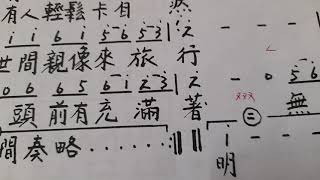 有人輕鬆卡自
i i 6 i 5 6 5 3 | 2 - - -
世間親像來旅行
0 6 6 5 6 1 2 3 | 2 - 0 5 6
頭前有充滿著 無
間奏略 · · · · · · :‖ ‖ ㊁ i - - -
明